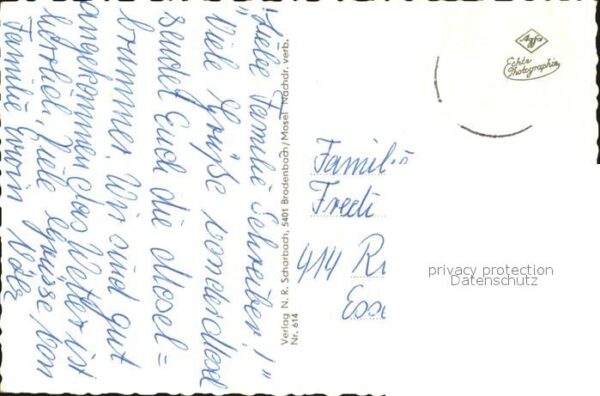 Liebe Familie Schreiber!
"Viele Grüße von der Mosel"
sendet Euch die Mosel=
brummer. Wir sind gut
angekommen das Wetter ist
herrlich. Viele Grüsse von
Familie Erwin
Verlag N. R. Scharbach, 5401 Brodenbach/Mosel Nachdr. verb.
Nr. 614
Agfa
Echte
Photographie
Familie
Fredi
414 R
Esse
privacy protection
Datenschutz